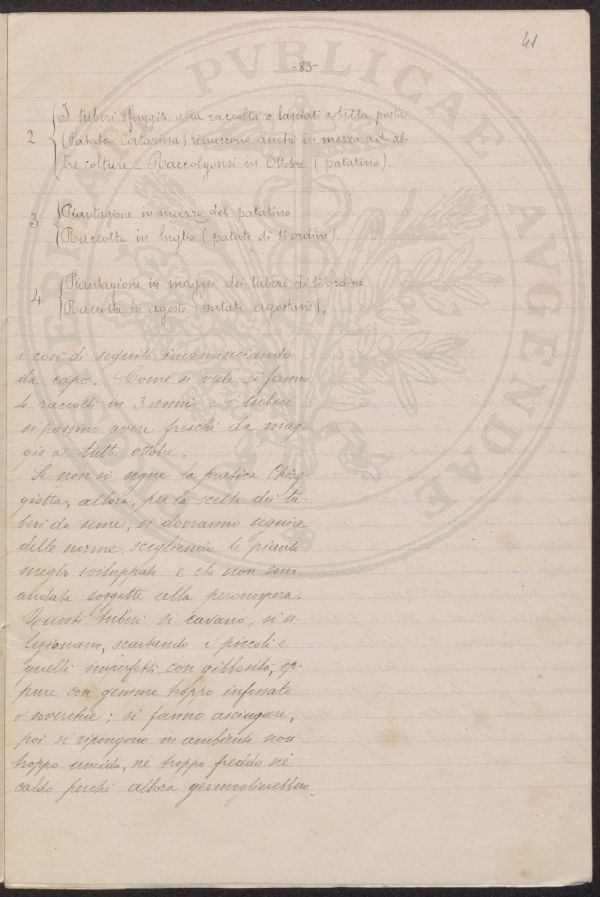 41
-83-
2 { I tuberi sfuggiti alla raccolta o lasciati a bella posta
(Patata Catarina) rinascono anche in mezzo ad al-
tre colture - Raccolgonsi in Ottobre (patatino).
3 { Piantagione in marzo del patatino
Raccolta in luglio (patate di 1° ordine).
4 { Piantagione in maggio dei tuberi di 1° ordine
Raccolta in agosto (patate agostane),
e così di seguito incominciando
da capo. Come si vede si fanno
4 raccolti in 3 anni e i tuberi
si possono avere freschi da mag-
gio a tutt' ottobre.
Se non si segue la pratica Chiog-
giotta, allora, per la scelta dei tu-
beri da seme, si dovranno seguire
delle norme, scegliendo le piante
meglio sviluppate e che non sono
andate soggette alla peronospora.
Questi tuberi si cavano, si se-
lezionano, scartando i piccoli e
quelli imperfetti, con gibbosità, op-
pure con gemme troppo infossate
o soverchie; si fanno asciugare,
poi si ripongono in ambienti non
troppo umido, nè troppo freddo nè
caldo perchè allora germoglierebbero.
PVBLICAE
AVGENDAE